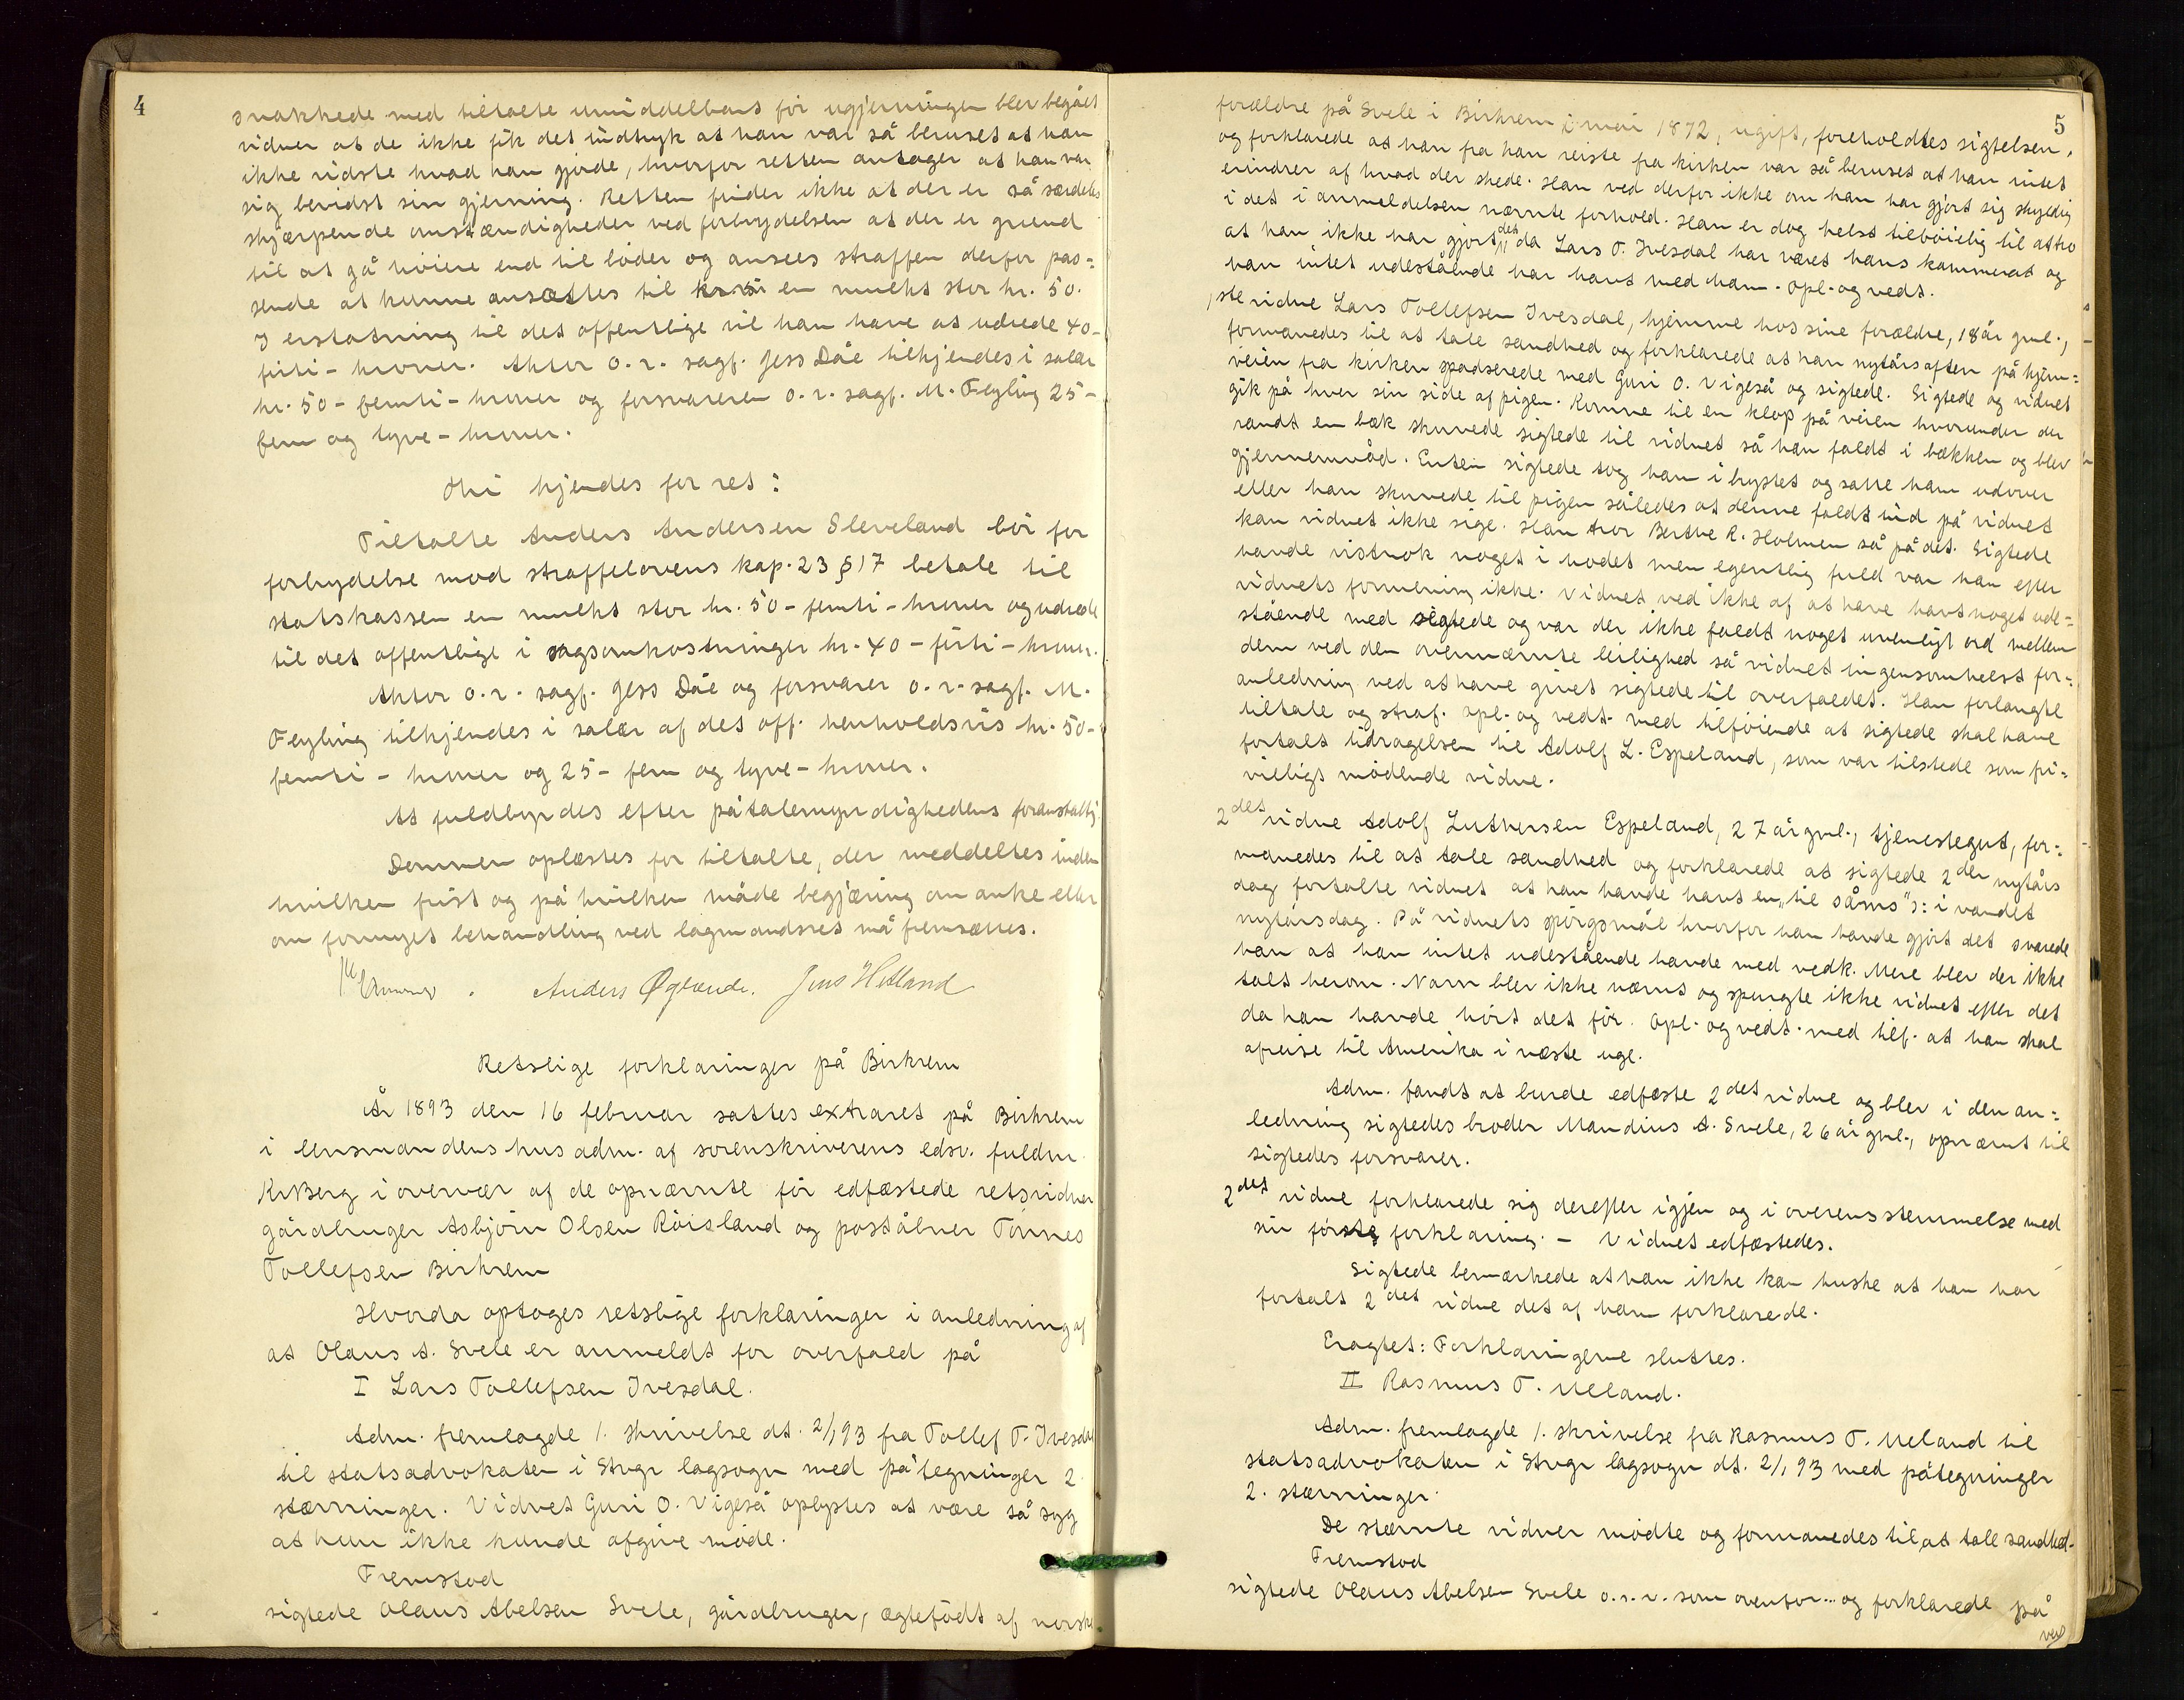 4
snakkede med tiltalte umiddelbart för ugjerningen blev begået
vidner at de ikke fik det indtryk at han var så beruset at han
ikke vidste hvad han gjorde, hvorfor retten antager at han var
sig bevidst sin gjerning. Retten finder ikke at der er så særdeles
skjærpende omstændigheder ved forbrydelsen at der er grund
til at gå höiere end til böder og ansees straffen derfor pas=
sende at kunne ansættes til en mulkt stor kr. 50.
I erstatning til det offentlige vil han have at udrede 40-
förti- kroner. Aktor o.r. sagf. Jess Dåe tilkjendes i salær
kr. 50- femti- kroner og forsvareren o.r. sagf. M. Feyling 25-
fem og tyve- kroner.
Thi kjendes for ret:
Tiltalte Anders Andersen Sleveland bör for
forbrydelse mod straffelovens kap. 23 § 17 betale til
statskassen en mulkt stor kr. 50- femti- kroner og udrede
til det offentlige i sagsomkostninger kr. 40- förti- kroner.
Aktor o.r. sagf. Jess Dåe og forsvarer o.r. sagf. M.
Feyling tilkjendes i salær af det off. henholdsvis kr. 50-
femti- kroner og 25- fem og tyve- kroner.
At fuldbyrdes efter påtalemyndighedens foranstaltg.
Dommen oplæstes for tiltalte, der meddeltes inden
hvilken frist og på hvilken måde begjæring om anke eller
om fornyet behandling ved lagmandsret må fremsættes.
Anders Øglænde. Jens Hetland
Retslige forklaringer på Birkrem
År 1893 den 16 februar sattes extraret på Birkrem
i lensmandens hus adm. af sorenskriverens edsv. fuldm.
Kr Berg i overvær af de opnævnte för edfæstede retsvidner
gårdbruger Asbjörn Olsen Röisland og poståbner Tönnes
Tollefsen Birkrem
Hvorda optoges retslige forklaringer i anledning af
at Olaus A. Svele er anmeldt for overfald på
I Lars Tollefsen Ivesdal.
Adm. fremlagde 1. skrivelse dt. 2/1 93 fra Tollef T. Ivesdal
til statsadvokaten i Stvgr lagsogn med påtegninger 2.
stævninger. Vidnet Guri O. Vigeså oplystes at være så syg
at hun ikke kunde afgive möde.
Fremstod
sigtede Olaus Abelsen Svele, gårdbruger, ægtefödt af norske
5
forældre på Svele i Birkrem i mai 1872, ugift, foreholdtes sigtelsen,
og forklarede at han fra han reiste fra kirken var så beruset at han intet
erindrer af hvad der skede. Han ved derfor ikke om han har gjort sig skyldig
i det i anmeldelsen nævnte forhold. Han er dog helst tilböielig til at tro
at han ikke har gjort det da Lars T. Ivesdal har været hans kammerat og
han intet udestående har havt med ham. Opl. og vedt.
1ste vidne Lars Tollefsen Ivesdal, hjemme hos sine forældre, 18 år gml.,
formanedes til at tale sandhed og forklarede at han nytårsaften på hjem=
veien fra kirken spadserede med Guri O. Vigeså og sigtede. Sigtede og vidnet
gik på hver sin side af pigen. Komne til en klop på veien hvorunder der
randt en bæk skuvede sigtede til vidnet så han faldt i bækken og blev
gjennemvåd. Enten sigtede tog ham i brystet og satte ham udover
eller han skuvede til pigen således at denne faldt ind på vidnet
kan vidnet ikke sige. Han tror Berthe R. Holmen så på det. Sigtede
havde vistnok noget i hodet men egentlig fuld var han efter
vidnets formening ikke. Vidnet ved ikke af at have havt noget ude=
stående med sigtede og var der ikke faldt noget uvenligt ord mellem
dem ved den ovennævnte leilighed så vidnet ingensomhelst for=
anledning ved at have givet sigtede til overfaldet. Han forlangte
tiltale og straf. Opl. og vedt. med tilföiende at sigtede skal have
fortalt tildragelsen til Adolf L. Espeland, som var tilstede som fri=
villigt mödende vidne.
2det vidne Adolf Luthersen Espeland, 27 år gml., tjenestegut, for=
manedes til at tale sandhed og forklarede at sigtede 2den nytårs
dag fortalte vidnet at han havde havt en "til såms" ɔ: i vandet
nytårsdag. På vidnets spörgsmål hvorfor han havde gjort det svarede
han at han intet udestående havde med vedk. Mere blev der ikke
talt herom. Navn blev ikke nævnt og spurgte ikke vidnet efter det
da han havde hört det för. Opl. og vedt. med tilf. at han skal
afreise til Amerika i næste uge.
Adm. fandt at burde edfæste 2det vidne og blev i den an=
ledning sigtedes broder Mandius A. Svele, 26 år gml., opnævnt til
sigtedes forsvarer.
2det vidne forklarede sig derefter igjen og i overensstemmelse med
sin förste forklaring. - Vidnet edfæstedes.
Sigtede bemærkede at han ikke kan huske at han har
fortalt 2det vidne det af ham forklarede.
Eragtet: Forklaringerne sluttes.
II Rasmus T. Ueland.
Adm. fremlagde 1. skrivelse fra Rasmus T. Ueland til
statsadvokaten i Stvgr lagsogn dt. 2/1 93 med påtegninger
2. stævninger.
De stævnte vidner mödte og formanedes til at tale sandhed.
Fremstod
sigtede Olaus Abelsen Svele o.s.v. som ovenfor... og forklarede på
ved